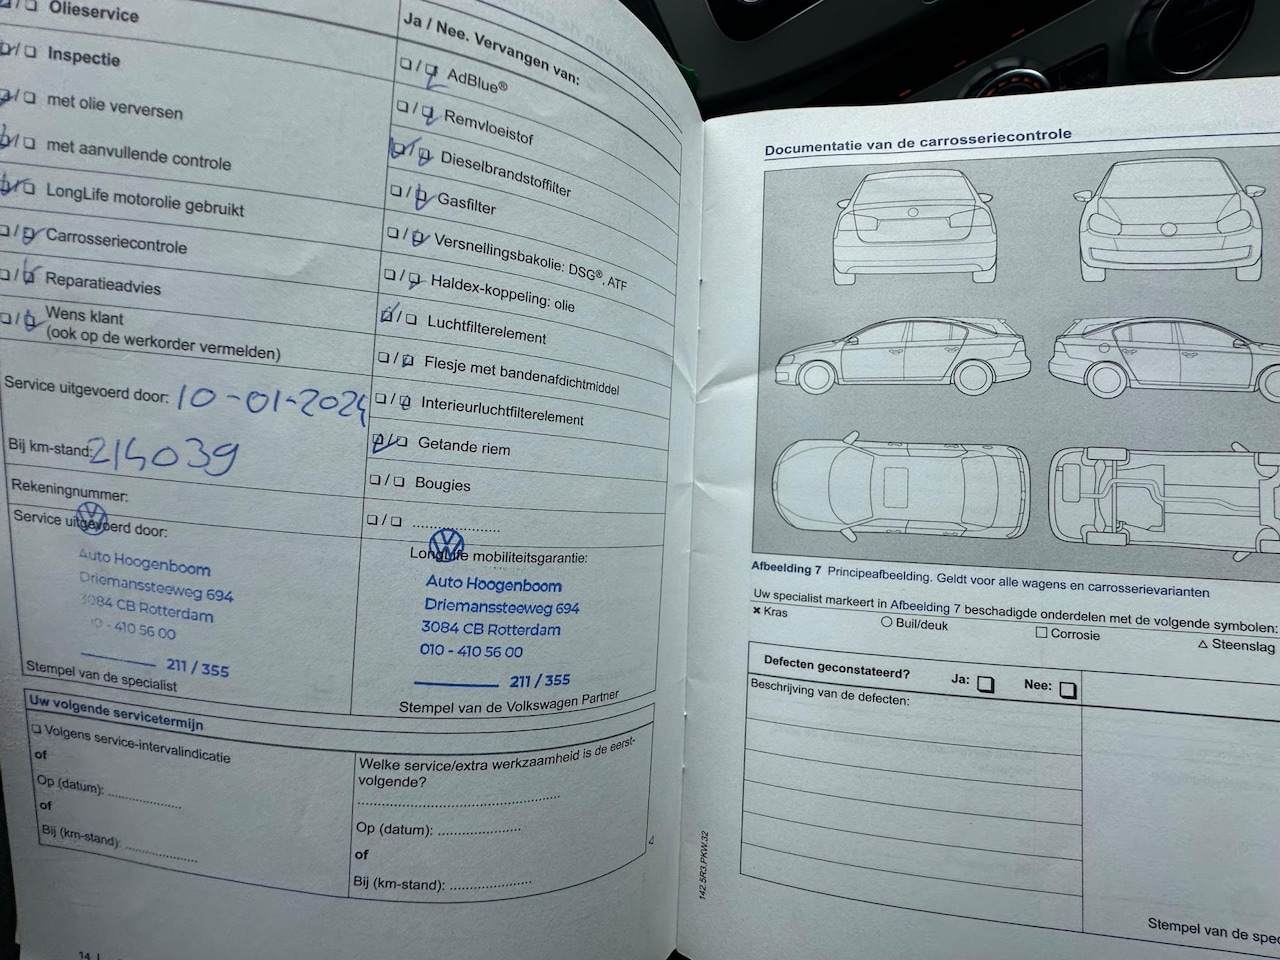 Olieservice
Inspectie
met olie verversen
met aanvullende controle
LongLife motorolie gebruikt
Carrosseriecontrole
Reparatieadvies
Wens klant
(ook op de werkorder vermelden)
Service uitgevoerd door: 10-01-2024
Bij km-stand: 214039
Rekeningnummer:
Service uitgevoerd door:
Auto Hoogenboom
Driemanssteeweg 694
3084 CB Rotterdam
10 - 410 56 00
211 / 355
Stempel van de specialist
Ja / Nee. Vervangen van:
AdBlue®
Remvloeistof
Dieselbrandstoffilter
Gasfilter
Versnellingsbakolie: DSG®, ATF
Haldex-koppeling: olie
Luchtfilterelement
Flesje met bandenafdichtmiddel
Interieurluchtfilterelement
Getande riem
Bougies
LongLife mobiliteitsgarantie:
Auto Hoogenboom
Driemanssteeweg 694
3084 CB Rotterdam
010 - 410 56 00
211 / 355
Stempel van de Volkswagen Partner
Uw volgende servicetermijn
Volgens service-intervalindicatie
of
Op (datum):
of
Bij (km-stand):
Welke service/extra werkzaamheid is de eerst-
volgende?
Op (datum):
of
Bij (km-stand):
14
142.5R3.PKW.32
Documentatie van de carrosseriecontrole
Afbeelding 7 Principeafbeelding. Geldt voor alle wagens en carrosserievarianten
Uw specialist markeert in Afbeelding 7 beschadigde onderdelen met de volgende symbolen:
Kras
Buil/deuk
Corrosie
Steenslag
Defecten geconstateerd? Ja: Nee:
Beschrijving van de defecten:
Stempel van de spec